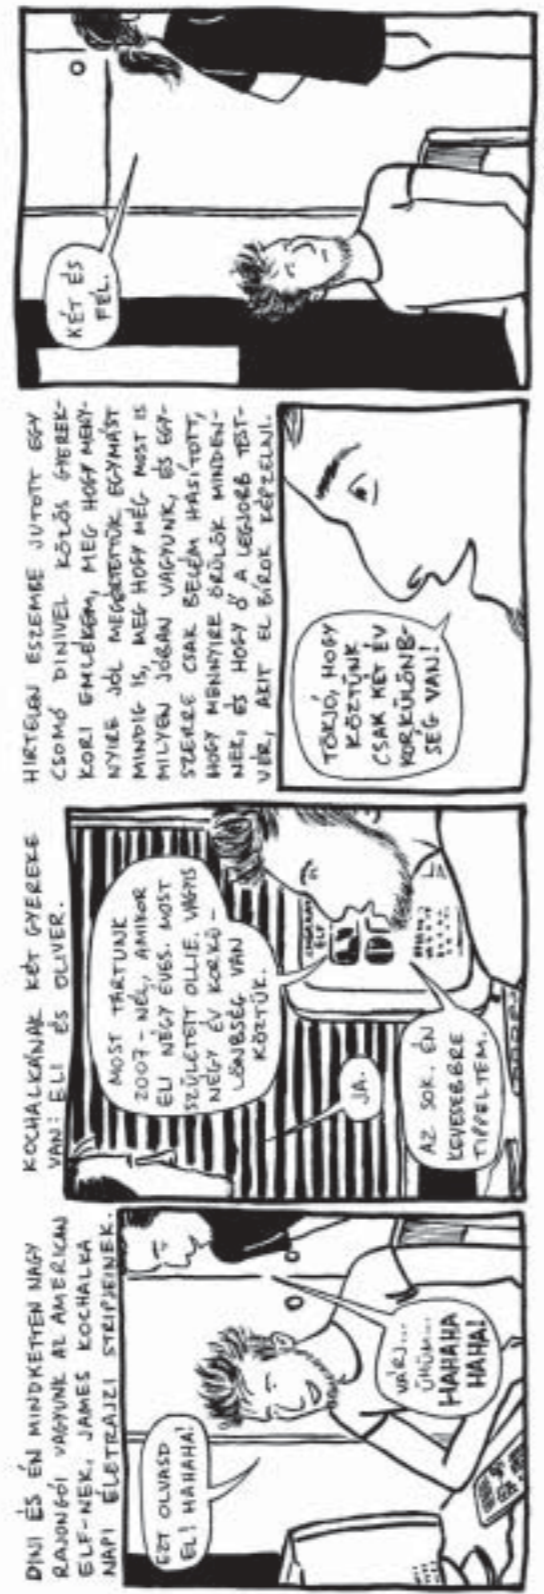 DINI ÉS ÉN MINDKETTEN NAGY
RAJONGÓI VAGYUNK AZ AMERICAN
ELF-NEK, JAMES KOCHALKA
NAPI ÉLETRAJZI STRIPJEINEK.
EZT OLVASD
EL! HAHAHA!
VÁRJ...
ÜHÜM...
HAHAHA
HAHA!
KOCHALKÁNAK KÉT GYEREKE
VAN: ELI ÉS OLIVER.
MOST TARTUNK
2007-NÉL, AMIKOR
ELI NÉGY ÉVES. MOST
SZÜLETETT OLLIE. VAGYIS
NÉGY ÉV KORKÜ-
LÖNBSÉG VAN
KÖZTÜK.
JA.
AZ SOK. ÉN
KEVESEBBRE
TIPPELTEM.
AMERICAN
ELF
HIRTELEN ESZEMBE JUTOTT EGY
CSOMÓ DINIVEL KÖZÖS GYEREK-
KORI EMLÉKEM, MEG HOGY MENY-
NYIRE JÓL MEGÉRTETTÜK EGYMÁST
MINDIG IS, MEG HOGY MÉG MOST IS
MILYEN JÓBAN VAGYUNK, ÉS EGY-
SZERRE CSAK BELÉM HASÍTOTT,
HOGY MENNYIRE ÖRÜLÖK MINDEN-
NEK, ÉS HOGY Ő A LEGJOBB TEST-
VÉR, AKIT EL BÍROK KÉPZELNI.
TÖKJÓ, HOGY
KÖZTÜNK
CSAK KÉT ÉV
KORKÜLÖNB-
SÉG VAN!
KÉT ÉS
FÉL.